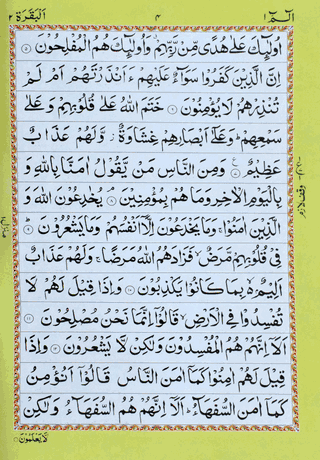 الٓمّٓ ١
٤
اَلْبَقَرَة ٢
اُولٰٓئِكَ عَلٰى هُدًى مِّنْ رَّبِّهِمْ وَاُولٰٓئِكَ هُمُ الْمُفْلِحُوْنَ ۝٥
اِنَّ الَّذِيْنَ كَفَرُوْا سَوَآءٌ عَلَيْهِمْ ءَاَنْذَرْتَهُمْ اَمْ لَمْ
تُنْذِرْهُمْ لَا يُؤْمِنُوْنَ ۝٦ خَتَمَ اللّٰهُ عَلٰى قُلُوْبِهِمْ وَعَلٰى
سَمْعِهِمْ ؕ وَعَلٰٓى اَبْصَارِهِمْ غِشَاوَةٌ ؗ وَّلَهُمْ عَذَابٌ
عَظِيْمٌ ۝٧ وَمِنَ النَّاسِ مَنْ يَّقُوْلُ اٰمَنَّا بِاللّٰهِ وَ
بِالْيَوْمِ الْاٰخِرِ وَمَا هُمْ بِمُؤْمِنِيْنَ ۝٨ يُخٰدِعُوْنَ اللّٰهَ وَ
الَّذِيْنَ اٰمَنُوْا ۚ وَمَا يَخْدَعُوْنَ اِلَّآ اَنْفُسَهُمْ وَمَا يَشْعُرُوْنَ ۝٩
فِيْ قُلُوْبِهِمْ مَّرَضٌ ۙ فَزَادَهُمُ اللّٰهُ مَرَضًا ۚ وَلَهُمْ عَذَابٌ
اَلِيْمٌۢ ۙ بِمَا كَانُوْا يَكْذِبُوْنَ ۝١٠ وَاِذَا قِيْلَ لَهُمْ لَا
تُفْسِدُوْا فِي الْاَرْضِ ۙ قَالُوْٓا اِنَّمَا نَحْنُ مُصْلِحُوْنَ ۝١١
اَلَآ اِنَّهُمْ هُمُ الْمُفْسِدُوْنَ وَلٰكِنْ لَّا يَشْعُرُوْنَ ۝١٢ وَاِذَا
قِيْلَ لَهُمْ اٰمِنُوْا كَمَآ اٰمَنَ النَّاسُ قَالُوْٓا اَنُؤْمِنُ
كَمَآ اٰمَنَ السُّفَهَآءُ ؕ اَلَآ اِنَّهُمْ هُمُ السُّفَهَآءُ وَلٰكِنْ
لَّا يَعْلَمُوْنَ ۝١٣
وقف لازم